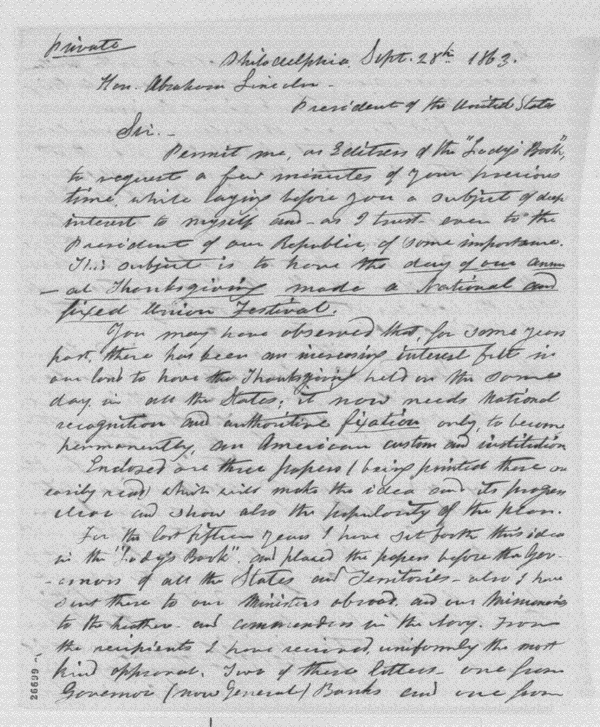 Private
Philadelphia, Sept. 28th 1863.
Hon. Abraham Lincoln -
President of the United States
Sir. -
Permit me, as Editress of the "Lady's Book",
to request a few minutes of your precious
time, while laying before you a subject of deep
interest to myself and - as I trust - even to the
President of our Republic, of some importance.
This subject is to have the day of our annu-
al Thanksgiving made a National and
fixed Union Festival.
You may have observed that, for some years
past, there has been an increasing interest felt in
our land to have the Thanksgiving held on the same
day, in all the States; it now needs National
recognition and authoritive fixation, only, to become
permanently, an American custom and institution.
Enclosed are three papers (being printed these are
easily read) which will make the idea and its progress
clear and show also the popularity of the plan.
For the last fifteen years I have set forth this idea
in the "Lady's Book", and placed the papers before the Gov-
ernors of all the States and Territories - also I have
sent these to our Ministers abroad, and our Missionaries
to the heathen - and commanders in the Navy. From
the recipients I have received, uniformly the most
kind approval. Two of these letters - one from
Governor (now General) Banks and one from
26699